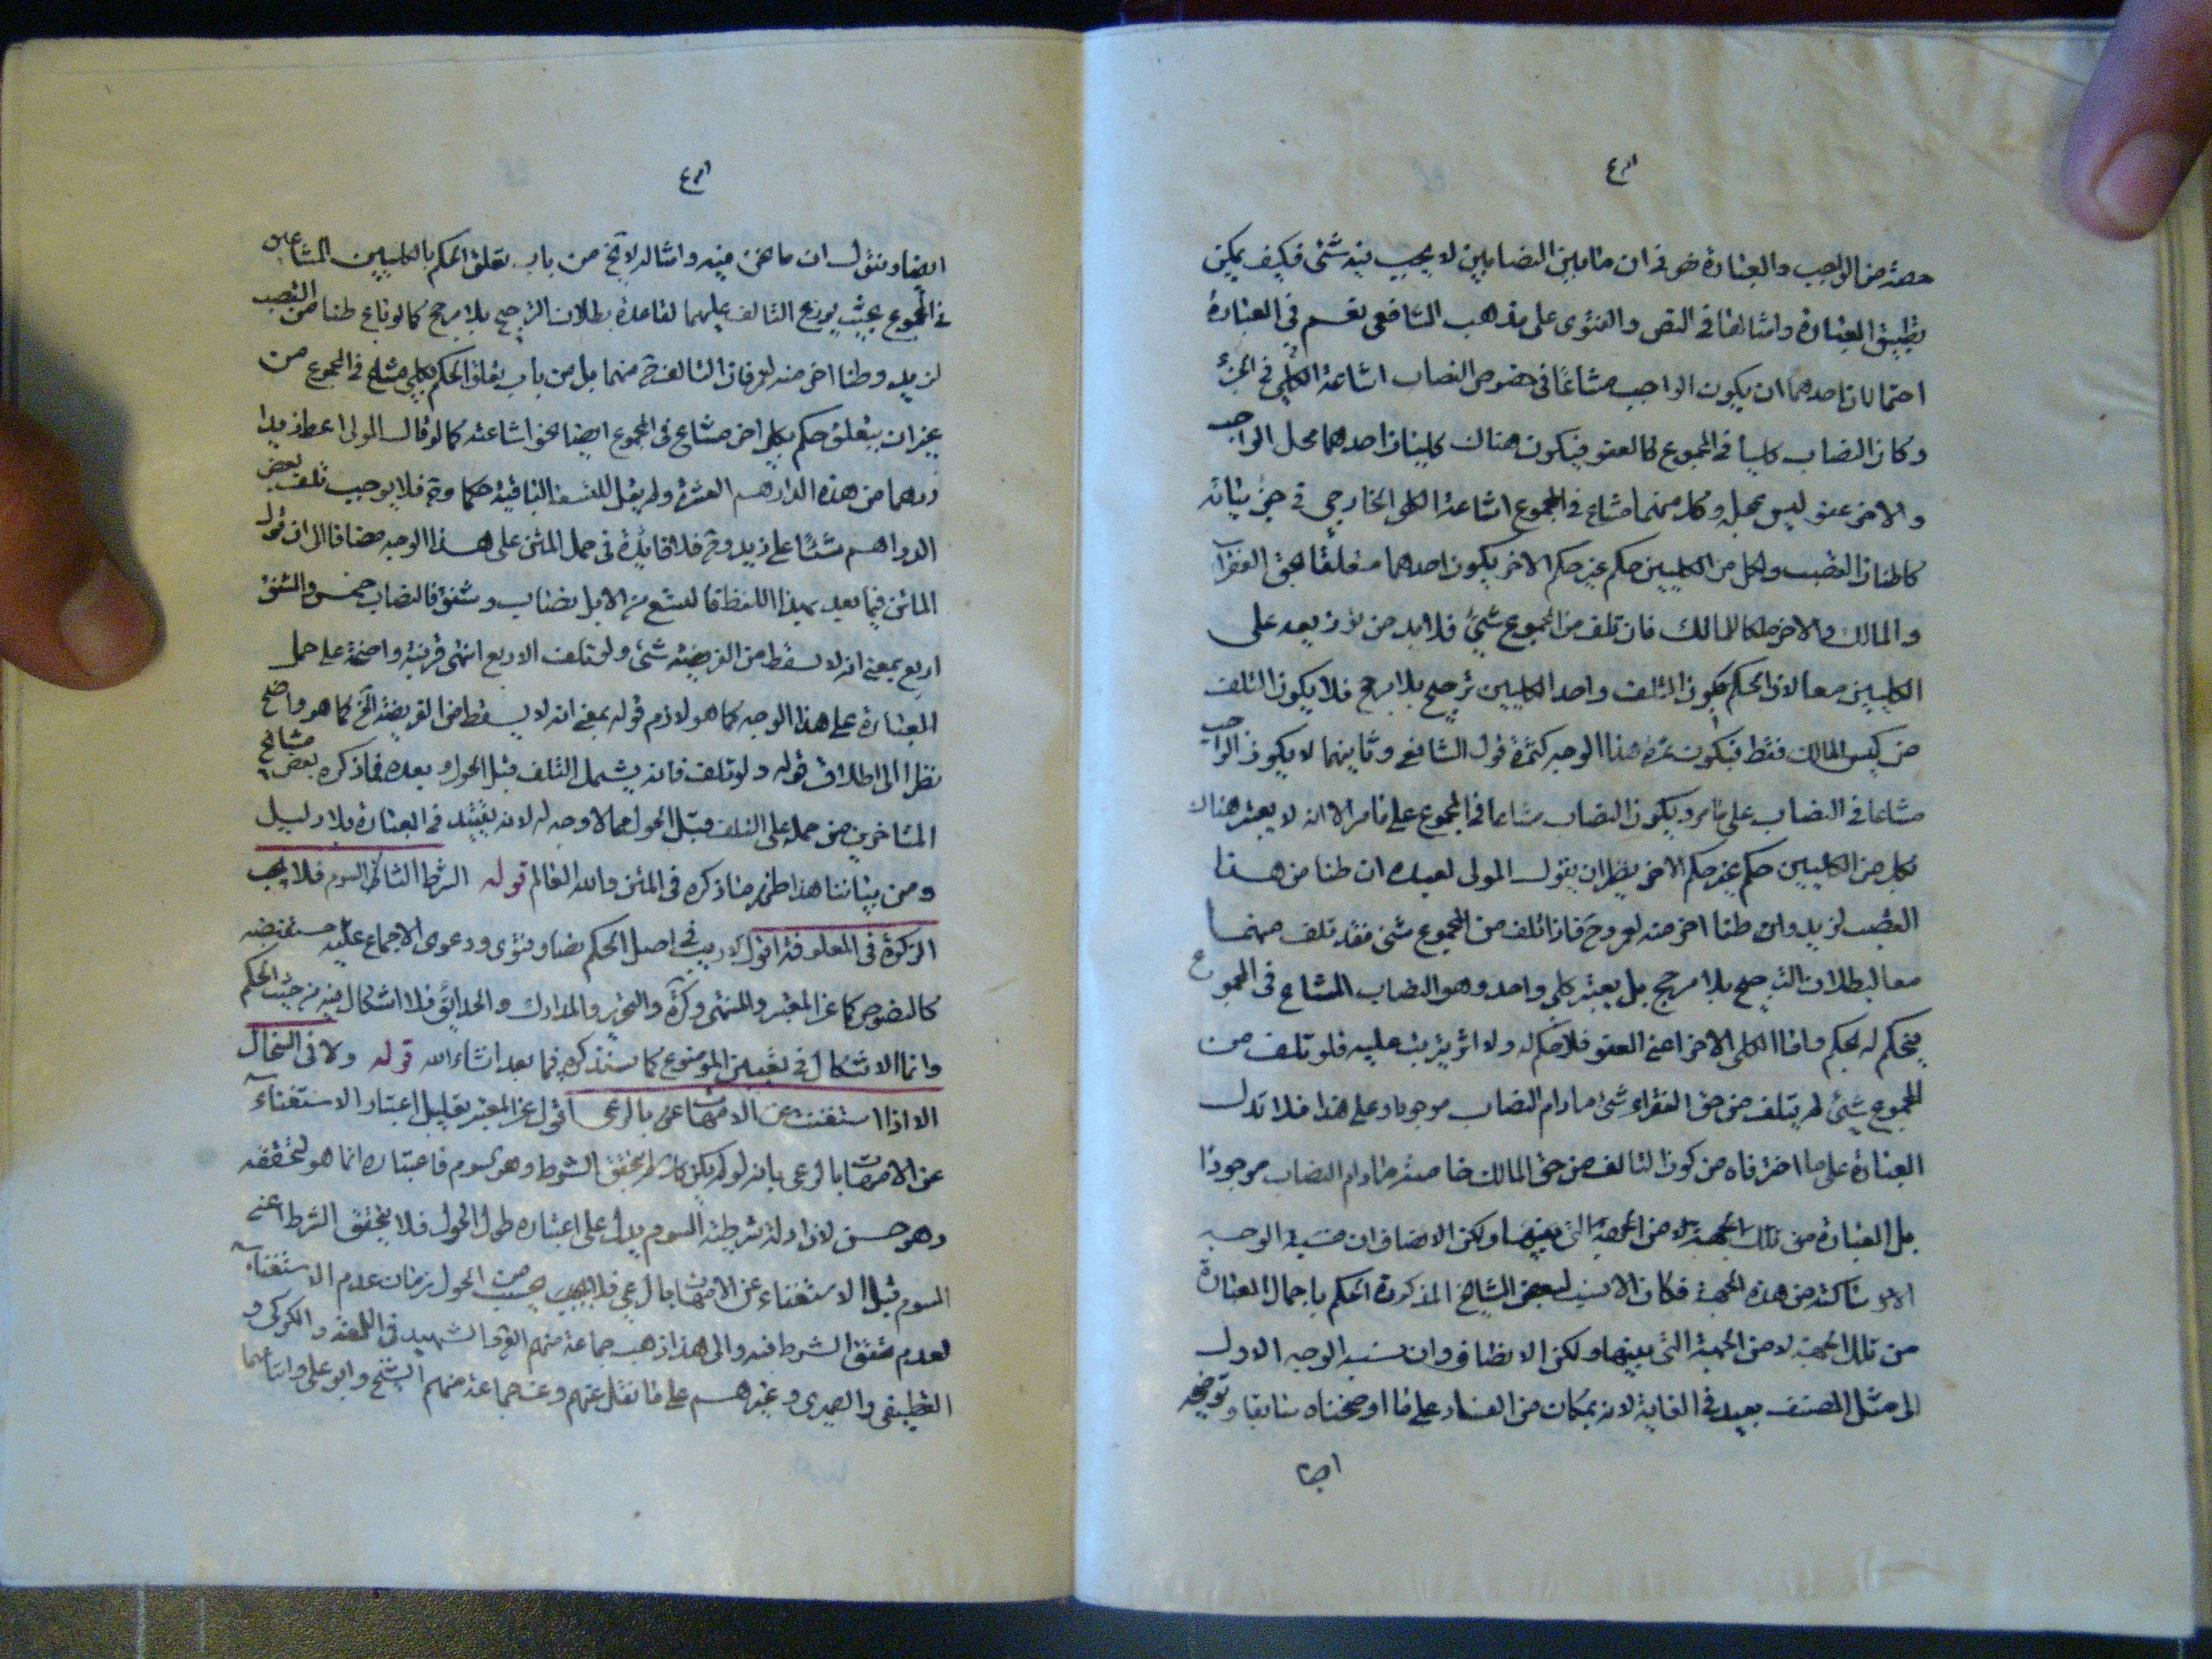 حصة من الواجب والعبارة في ان ما بين النصابين لا يجب فيه شئ فكيف يمكن
تطبيق العبارة وامثالها في النص والفتوى على مذهب الشافعي نعم في العبارة
احتمالان احدهما ان يكون الواجب مشاعًا في خصوص النصاب اشاعة الكلي في الجزء
وكان النصاب كليا في المجموع كالعفو فيكون هناك كليان احدهما محل الواجب
والاخر عفو ليس محله وكل منهما مشاع في المجموع اشاعة الكلي الخارجي في جزئياته
كاطنان القصب ولكل من الكليين حكم غير حكم الاخر يكون احدهما متعلقا لحق الفقراء
والمالك والاخر ملكا للمالك فان تلف من المجموع شئ فلا بد من توزيعه على
الكليين معا لان الحكم بكون التلف واحد الكليين ترجيح بلا مرجح فلا يكون التلف
من كيس المالك فقط فيكون ثمرة هذا الوجه كثمرة قول الشافعي وثانيهما لا يكون الواجب
مشاعا في النصاب على ما مر ويكون النصاب مشاعا في المجموع على ما مر الا انه لا يعتبر هناك
لكل من الكليين حكم غير حكم الاخر نظير ان يقول المولى لعبده ان طنا من هذا
القصب لزيد وان طنا اخر منه لعمرو ح فاذا تلف من المجموع شئ فقد تلف منهما
معا لبطلان الترجيح بلا مرجح بل يعتبر كلي واحد وهو النصاب المشاع في المجموع
يحكم له بحكم واما الكلي الاخر اعني العفو فلا حكم له ولا اثر يترتب عليه فلو تلف من
المجموع شئ لم يتلف من حق الفقراء شئ ما دام النصاب موجودا وعلى هذا فلا تدل
العبارة على ما اخترناه من كون التالف من حق المالك خاصة ما دام النصاب موجودًا
بل العبارة من تلك الجهة لا من الجهة التي بينها ولكن الانصاف ان نسبة الوجه
الاول ساكتة من هذه الجهة فكان الانسب لبعض المشايخ المذكورة الحكم باجمال العبارة
من تلك الجهة لا من الجهة التي بينها ولكن الانصاف وان نسبة الوجه الاول
الى مثل المصنف بعيد في الغاية لانه بمكان من الفساد على ما اوضحناه سابقا وتوضيحه
ايضا
ايضا ونقول ان ما نحن فيه وامثاله لا يخ من باب تعلق الحكم بالكليين المشاعين
في المجموع بحيث يوزع التالف عليهما لقاعدة بطلان الترجيح بلا مرجح كما لو باع طنا من القصب
لزيد وطنا اخر منه لعمرو فان التالف ح منهما بل من باب تعلق الحكم بكلي مشاع في المجموع من
غير ان يتعلق حكم بكلي اخر مشاع في المجموع ايضا نحو اشاعته كما لو قال المولى اعط زيدا
درهما من هذه الدراهم العشرة ولم يقل للتسعة الباقية حكما وح فلا يوجب تلف بعض
الدراهم شئًا على زيد وح فلا فائدة في حمل المتن على هذا الوجه مضافا الى ان قول
الماتن فيما بعد بهذا اللفظ فالتسع من الابل نصاب وشنق فالنصاب خمس والشنق
اربع بمعنى انه لا يسقط من الفريضة شئ ولو تلف الاربع انتهى قرينة واضحة على حمل
العبارة على هذا الوجه كما هو لازم قوله بمعنى انه لا يسقط من الفريضة الخ كما هو واضح
نظرا الى اطلاق قوله ولو تلف فانه يشمل التلف قبل الحول وبعده فما ذكره بعض مشايخ
المتاخرين من حمله على التلف قبل الحول مما لا وجه له لانه تقييد في العبارة بلا دليل
ومن بياننا هذا ظهر ما ذكره في المتن والله العالم قوله الشرط الثاني السوم فلا يجب
الزكوة في المعلوفة اقول لا ريب في اصل الحكم نصا وفتوى ودعوى الاجماع عليه مستفيضه
كالنصوص كما عن المعتبر والمنتهى وكرة والتحرير والمدارك والحدائق فلا اشكال فيه من حيث الحكم
وانما الاشكال في تعيين الموضوع كما سنذكره فيما بعد انشاء الله قوله ولا في السخال
الا اذا استغنت عن الامهات بالرعى اقول عن المعتبر تعليل اعتبار الاستغناء
عن الامهات بالرعى بانه لو لم يكن كك لم يتحقق الشرط وهو السوم فاعتباره انما هو لتحققه
وهو حسن لان ادلة شرطية السوم يدل على اعتباره طول الحول فلا يتحقق الشرط اعني
السوم قبل الاستغناء عن الامهات بالرعي فلا يحسب من الحول زمان عدم الاستغناء
لعدم تحقق الشرط فيه والى هذا ذهب جماعة منهم الشهيد في اللمعة والكركي و
القطيفي والصيمري وغيرهم على ما نقل عنهم وعن جماعة منهم الشيخ وابو علي واتباعهما